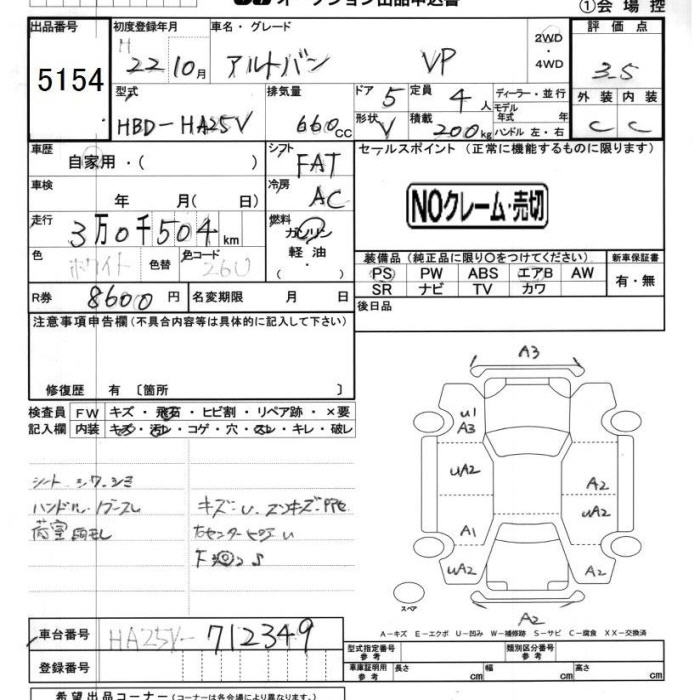 オークション出品申込書
①会場控
出品番号 初度登録年月 車名・グレード 2WD・4WD 評価点
5154 H 22 10月 アルトバン VP 3.5
型式 排気量 ドア 5 定員 4人 ディーラー・並行 外装 内装
HBD-HA25V 660cc 形状 V 積載 200kg モデル年式 年 ハンドル 左・右 C C
車歴 自家用・( ) シフト FAT セールスポイント (正常に機能するものに限ります)
車検 年 月( 日) 冷房 AC NOクレーム・売切
走行 3万0千504km 燃料 ガソリン 軽油 ( )
色 ホワイト 色替 色コード 26U 装備品 (純正品に限り○をつけてください) 新車保証書
PS PW ABS エアB AW 有・無
SR ナビ TV カワ
R券 8600円 名変期限 月 日 後日品
注意事項申告欄(不具合内容等は具体的に記入して下さい)
修復歴 有 〔箇所 〕
検査員 FW キズ・飛石・ヒビ割・リペア跡・×要
記入欄 内装 キズ・汚レ・コゲ・穴・スレ・キレ・破レ
シート シワ、シミ
キズ:U
A3
U1
A3
UA2
A2
UA2
A1
UA2
A2
A2
スペア
A-キズ E-エクボ U-凹み W-補修跡 S-サビ C-腐食 XX-交換済
車台番号 HA25V- 712349
登録番号
型式指定番号 参考 類別区分番号 参考
車庫証明用 参考 長さ cm 幅 cm 高さ cm
希望出品コーナー (コーナーは各会場により異なります。)